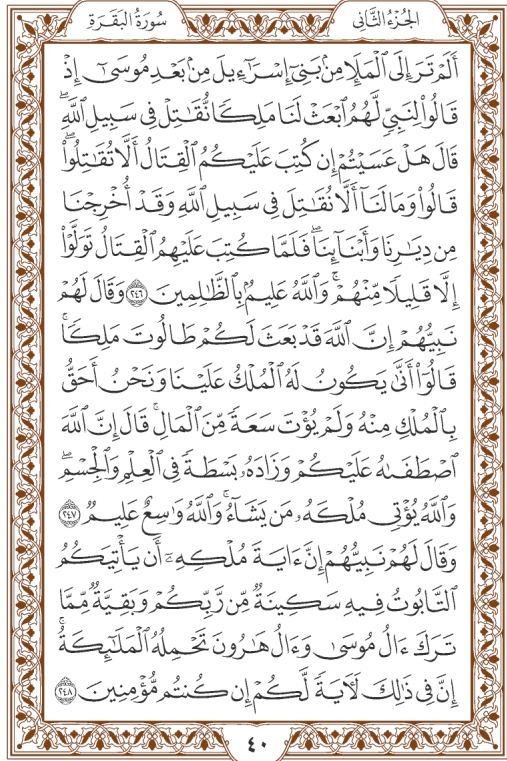 الجُزْءُ الثَّانِى
سُورَةُ البَقَرَةِ
أَلَمْ تَرَ إِلَى ٱلْمَلَإِ مِنۢ بَنِىٓ إِسْرَٰٓءِيلَ مِنۢ بَعْدِ مُوسَىٰٓ إِذْ
قَالُوا۟ لِنَبِىٍّ لَّهُمُ ٱبْعَثْ لَنَا مَلِكًا نُّقَٰتِلْ فِى سَبِيلِ ٱللَّهِۖ
قَالَ هَلْ عَسَيْتُمْ إِن كُتِبَ عَلَيْكُمُ ٱلْقِتَالُ أَلَّا تُقَٰتِلُوا۟ۖ
قَالُوا۟ وَمَا لَنَآ أَلَّا نُقَٰتِلَ فِى سَبِيلِ ٱللَّهِ وَقَدْ أُخْرِجْنَا
مِن دِيَٰرِنَا وَأَبْنَآئِنَاۖ فَلَمَّا كُتِبَ عَلَيْهِمُ ٱلْقِتَالُ تَوَلَّوْا۟
إِلَّا قَلِيلًا مِّنْهُمْۚ وَٱللَّهُ عَلِيمٌۢ بِٱلظَّٰلِمِينَ ٢٤٦ وَقَالَ لَهُمْ
نَبِيُّهُمْ إِنَّ ٱللَّهَ قَدْ بَعَثَ لَكُمْ طَالُوتَ مَلِكًاۚ
قَالُوٓا۟ أَنَّىٰ يَكُونُ لَهُ ٱلْمُلْكُ عَلَيْنَا وَنَحْنُ أَحَقُّ
بِٱلْمُلْكِ مِنْهُ وَلَمْ يُؤْتَ سَعَةً مِّنَ ٱلْمَالِۚ قَالَ إِنَّ ٱللَّهَ
ٱصْطَفَىٰهُ عَلَيْكُمْ وَزَادَهُۥ بَسْطَةً فِى ٱلْعِلْمِ وَٱلْجِسْمِۖ
وَٱللَّهُ يُؤْتِى مُلْكَهُۥ مَن يَشَآءُۚ وَٱللَّهُ وَٰسِعٌ عَلِيمٌ ٢٤٧
وَقَالَ لَهُمْ نَبِيُّهُمْ إِنَّ ءَايَةَ مُلْكِهِۦٓ أَن يَأْتِيَكُمُ
ٱلتَّابُوتُ فِيهِ سَكِينَةٌ مِّن رَّبِّكُمْ وَبَقِيَّةٌ مِّمَّا
تَرَكَ ءَالُ مُوسَىٰ وَءَالُ هَٰرُونَ تَحْمِلُهُ ٱلْمَلَٰٓئِكَةُۚ
إِنَّ فِى ذَٰلِكَ لَءَايَةً لَّكُمْ إِن كُنتُم مُّؤْمِنِينَ ٢٤٨
٤٠